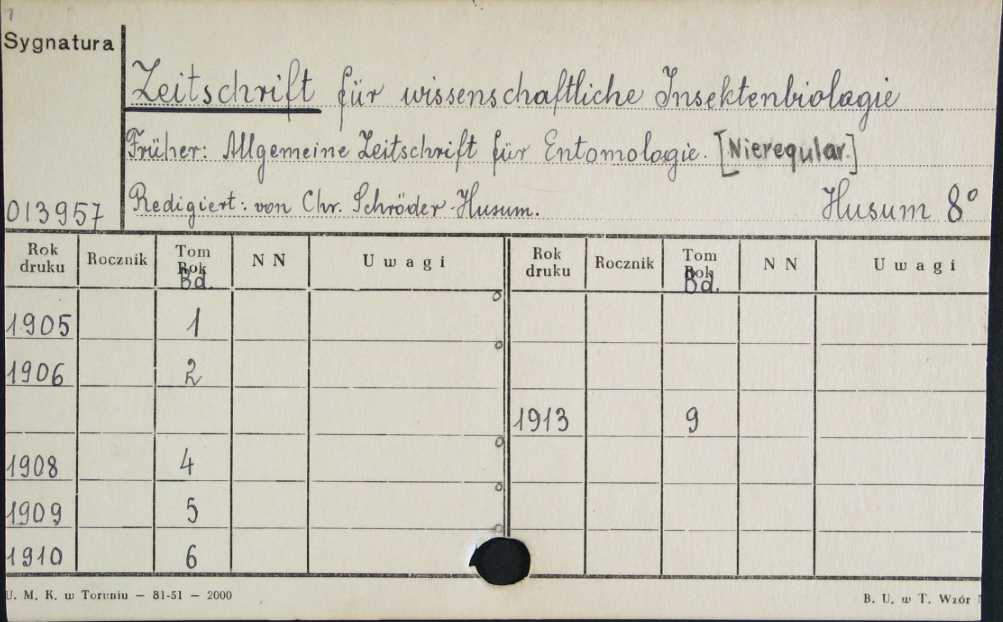 Sygnatura
Zeitschrift für wissenschaftliche Insektenbiologie
Früher: Allgemeine Zeitschrift für Entomologie. [Nieregular.]
013957 Redigiert: von Chr. Schröder-Husum. Husum 8°
Rok druku Rocznik Tom Rok Bd. NN Uwagi Rok druku Rocznik Tom Rok Bd. NN Uwagi
1905 1
1906 2
1913 9
1908 4
1909 5
1910 6
U. M. K. w Toruniu — 81-51 — 2000 B. U. w T. Wzór